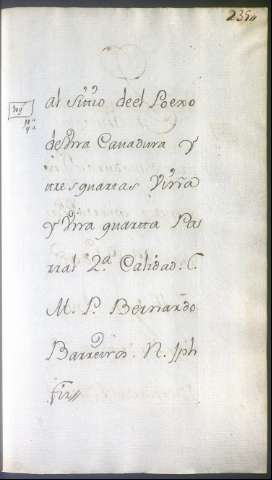 235
al Sitio deel Poexo
de Vra Cavadura y
tres quartas Viña
y Vna quarta Pa
rral 2.ª Calidad. C.
M. P. Bernardo
Barreiros. N. Jph